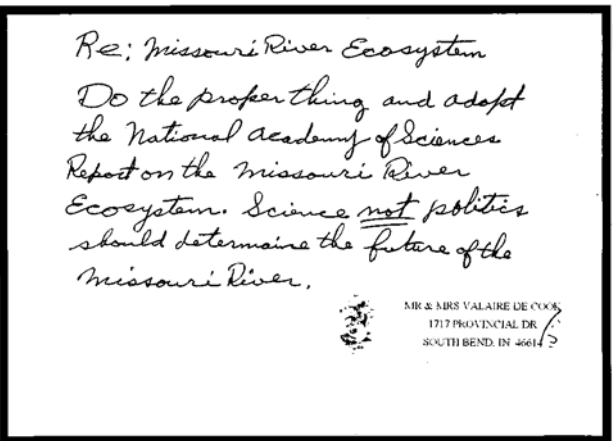 Re: Missouri River Ecosystem
Do the proper thing and adopt
the National Academy of Sciences
Report on the Missouri River
Ecosystem. Science not politics
should determaine the future of the
Missouri River.
MR & MRS VALAIRE DE COOK
1717 PROVINCIAL DR
SOUTH BEND, IN 46614